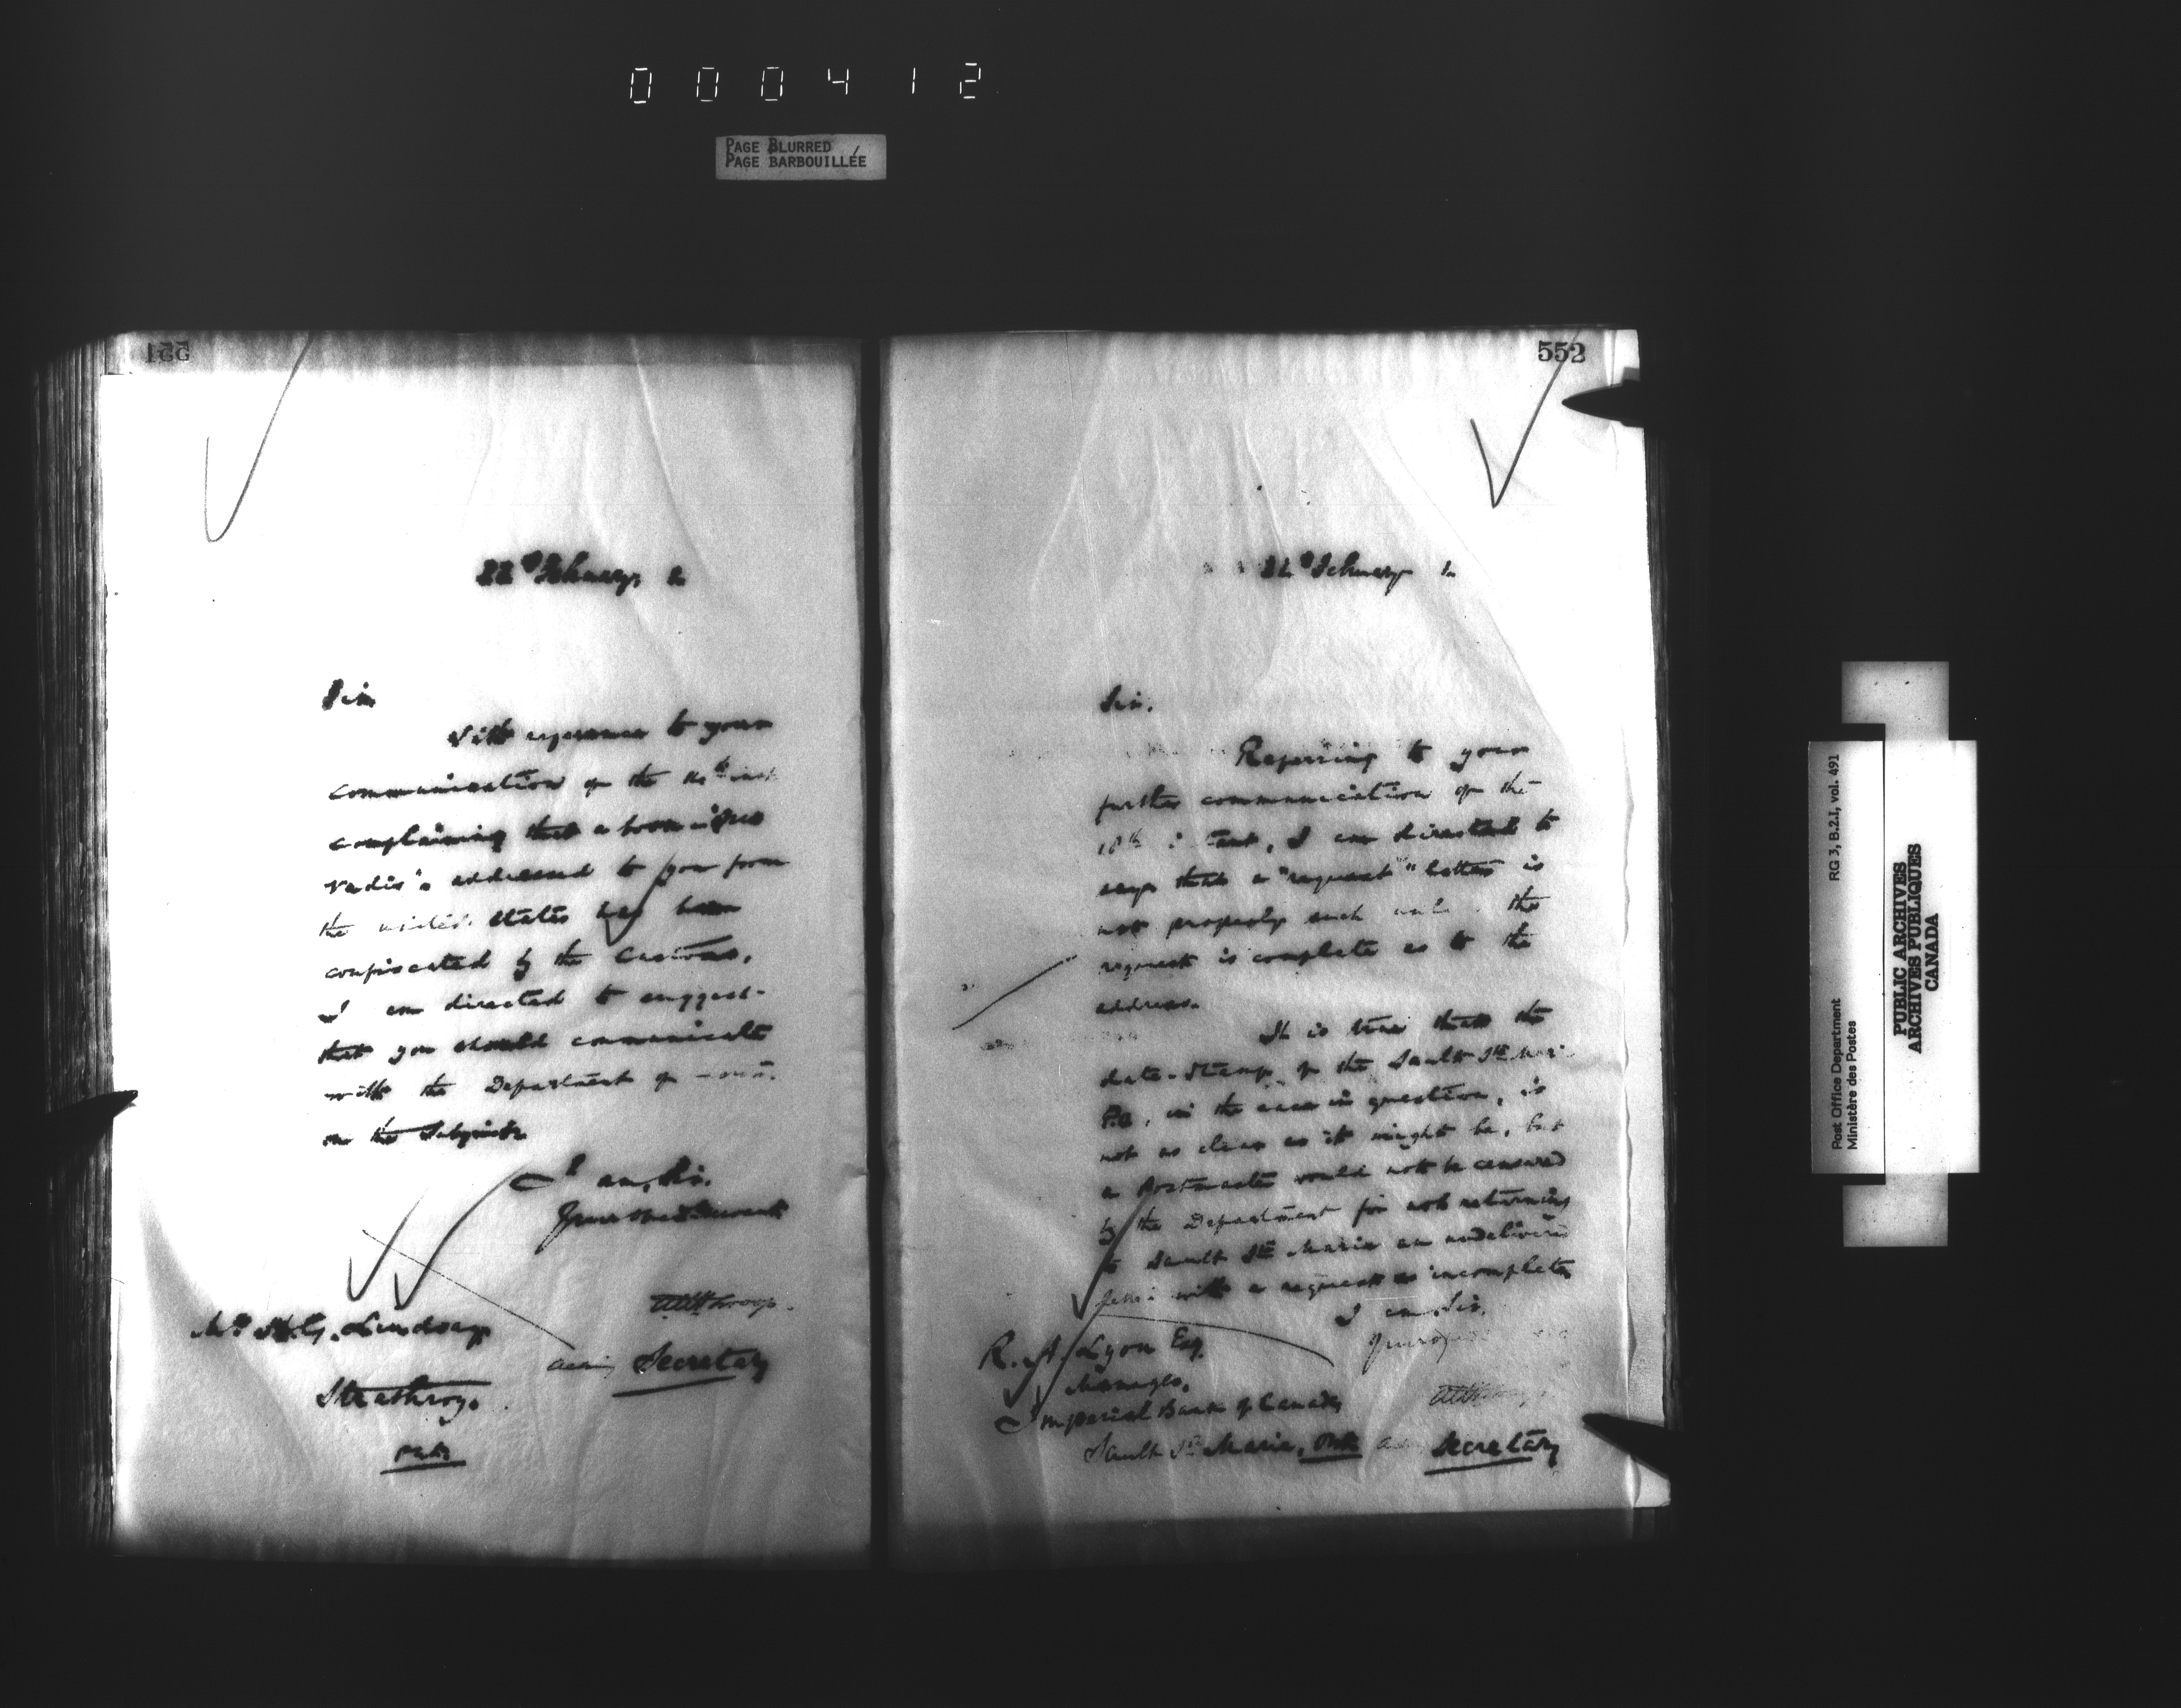 000412
PAGE BLURRED
PAGE BARBOUILLÉE
551
22d February
Sir
With reference to your
communication of the inst
complaining that a book
addressed to you from
the United States has been
confiscated by the Customs,
I am directed to suggest
that you should communicate
with the Department of
on the subject.
I am, Sir,
Your obedt Servant
Mr H. G. Lindsay
Acting Secretary
Strathroy.
Ont.
552
22d February
Sir,
Referring to your
further communication of the
18th instant, I am directed to
say that a "request" letter is
not properly such unless the
request is complete as to the
address.
It is true that the
date-stamp of the Sault Ste Marie
P.O., in the case in question, is
not as clear as it might be, but
a Postmaster would not be censured
by the Department for not returning
to Sault Ste Marie an undelivered
letter with a request so incomplete
I am, Sir,
R. A. Lyon Esq.
Manager,
Imperial Bank of Canada
Sault Ste Marie, Ont. Secretary
RG 3, B.2.1, vol. 491
Post Office Department
Ministère des Postes
PUBLIC ARCHIVES
ARCHIVES PUBLIQUES
CANADA